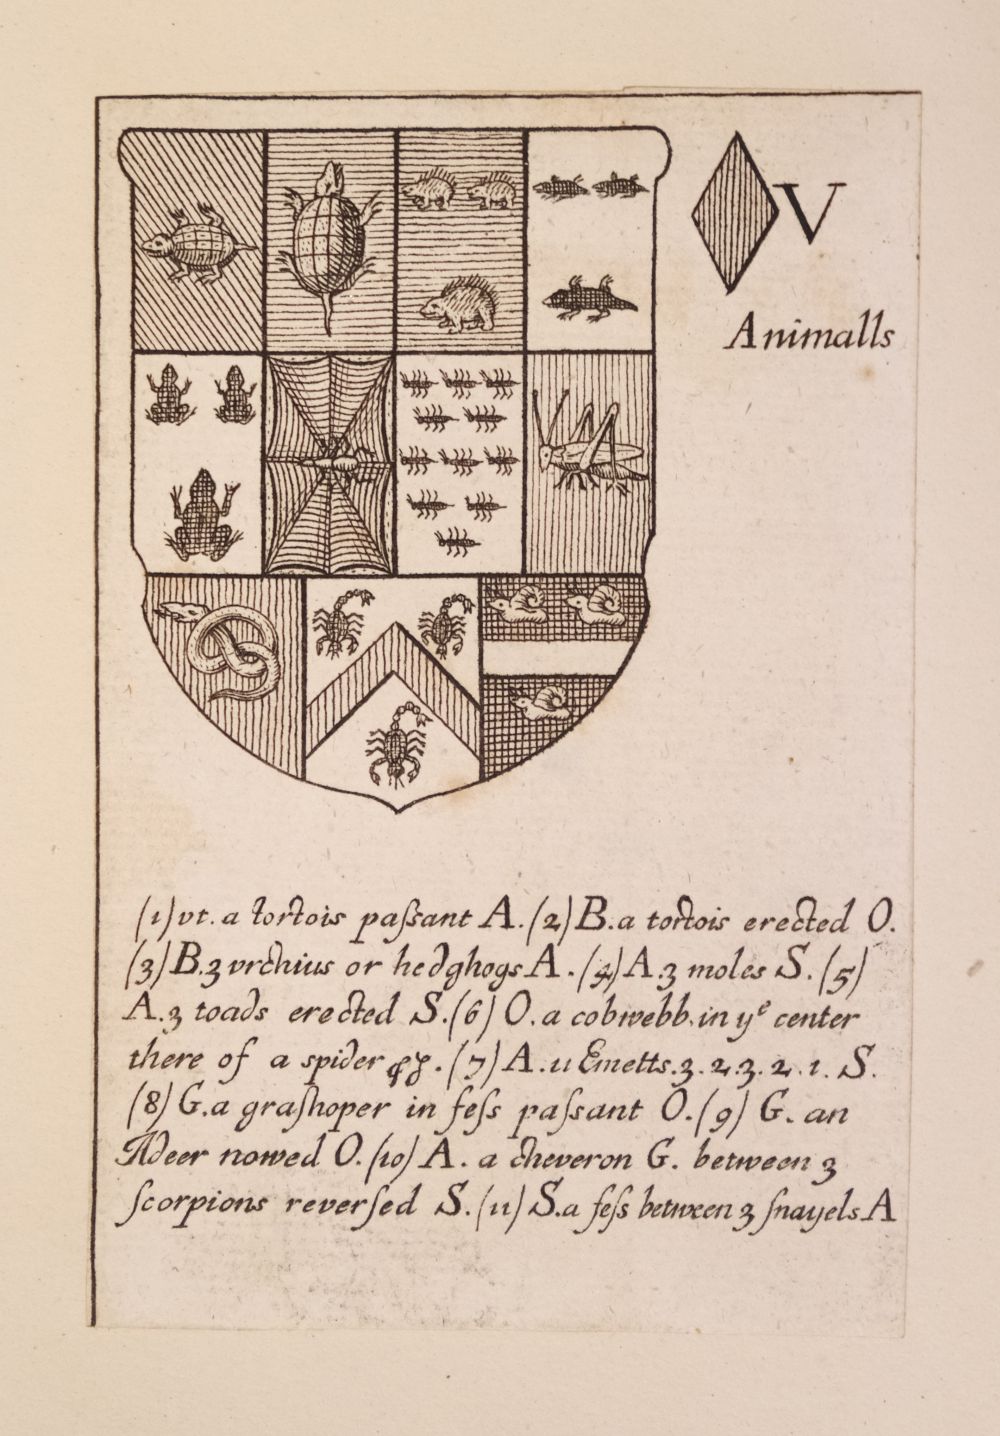 V
Animalls
(1) vt. a tortois paſsant A. (2) B. a tortois erected O.
(3) B. 3 vrchius or hedghogs A. (4) A. 3 moles S. (5)
A. 3 toads erected S. (6) O. a cobwebb. in yᵉ center
there of a spider . (7) A. 11 Emetts. 3. 2. 3. 2. 1. S.
(8) G. a graſhoper in feſs paſsant O. (9) G. an
Adeer nowed O. (10) A. a cheveron G. between 3
ſcorpions reverſed S. (11) S. a feſs between 3 ſnayels A